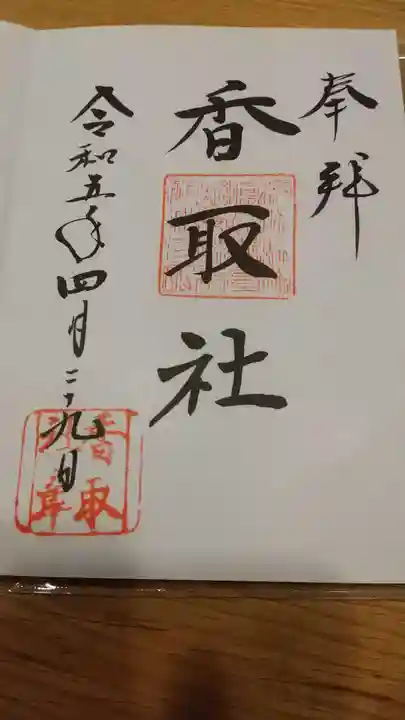 奉拝
香取社
令和五年四月二十九日
香取